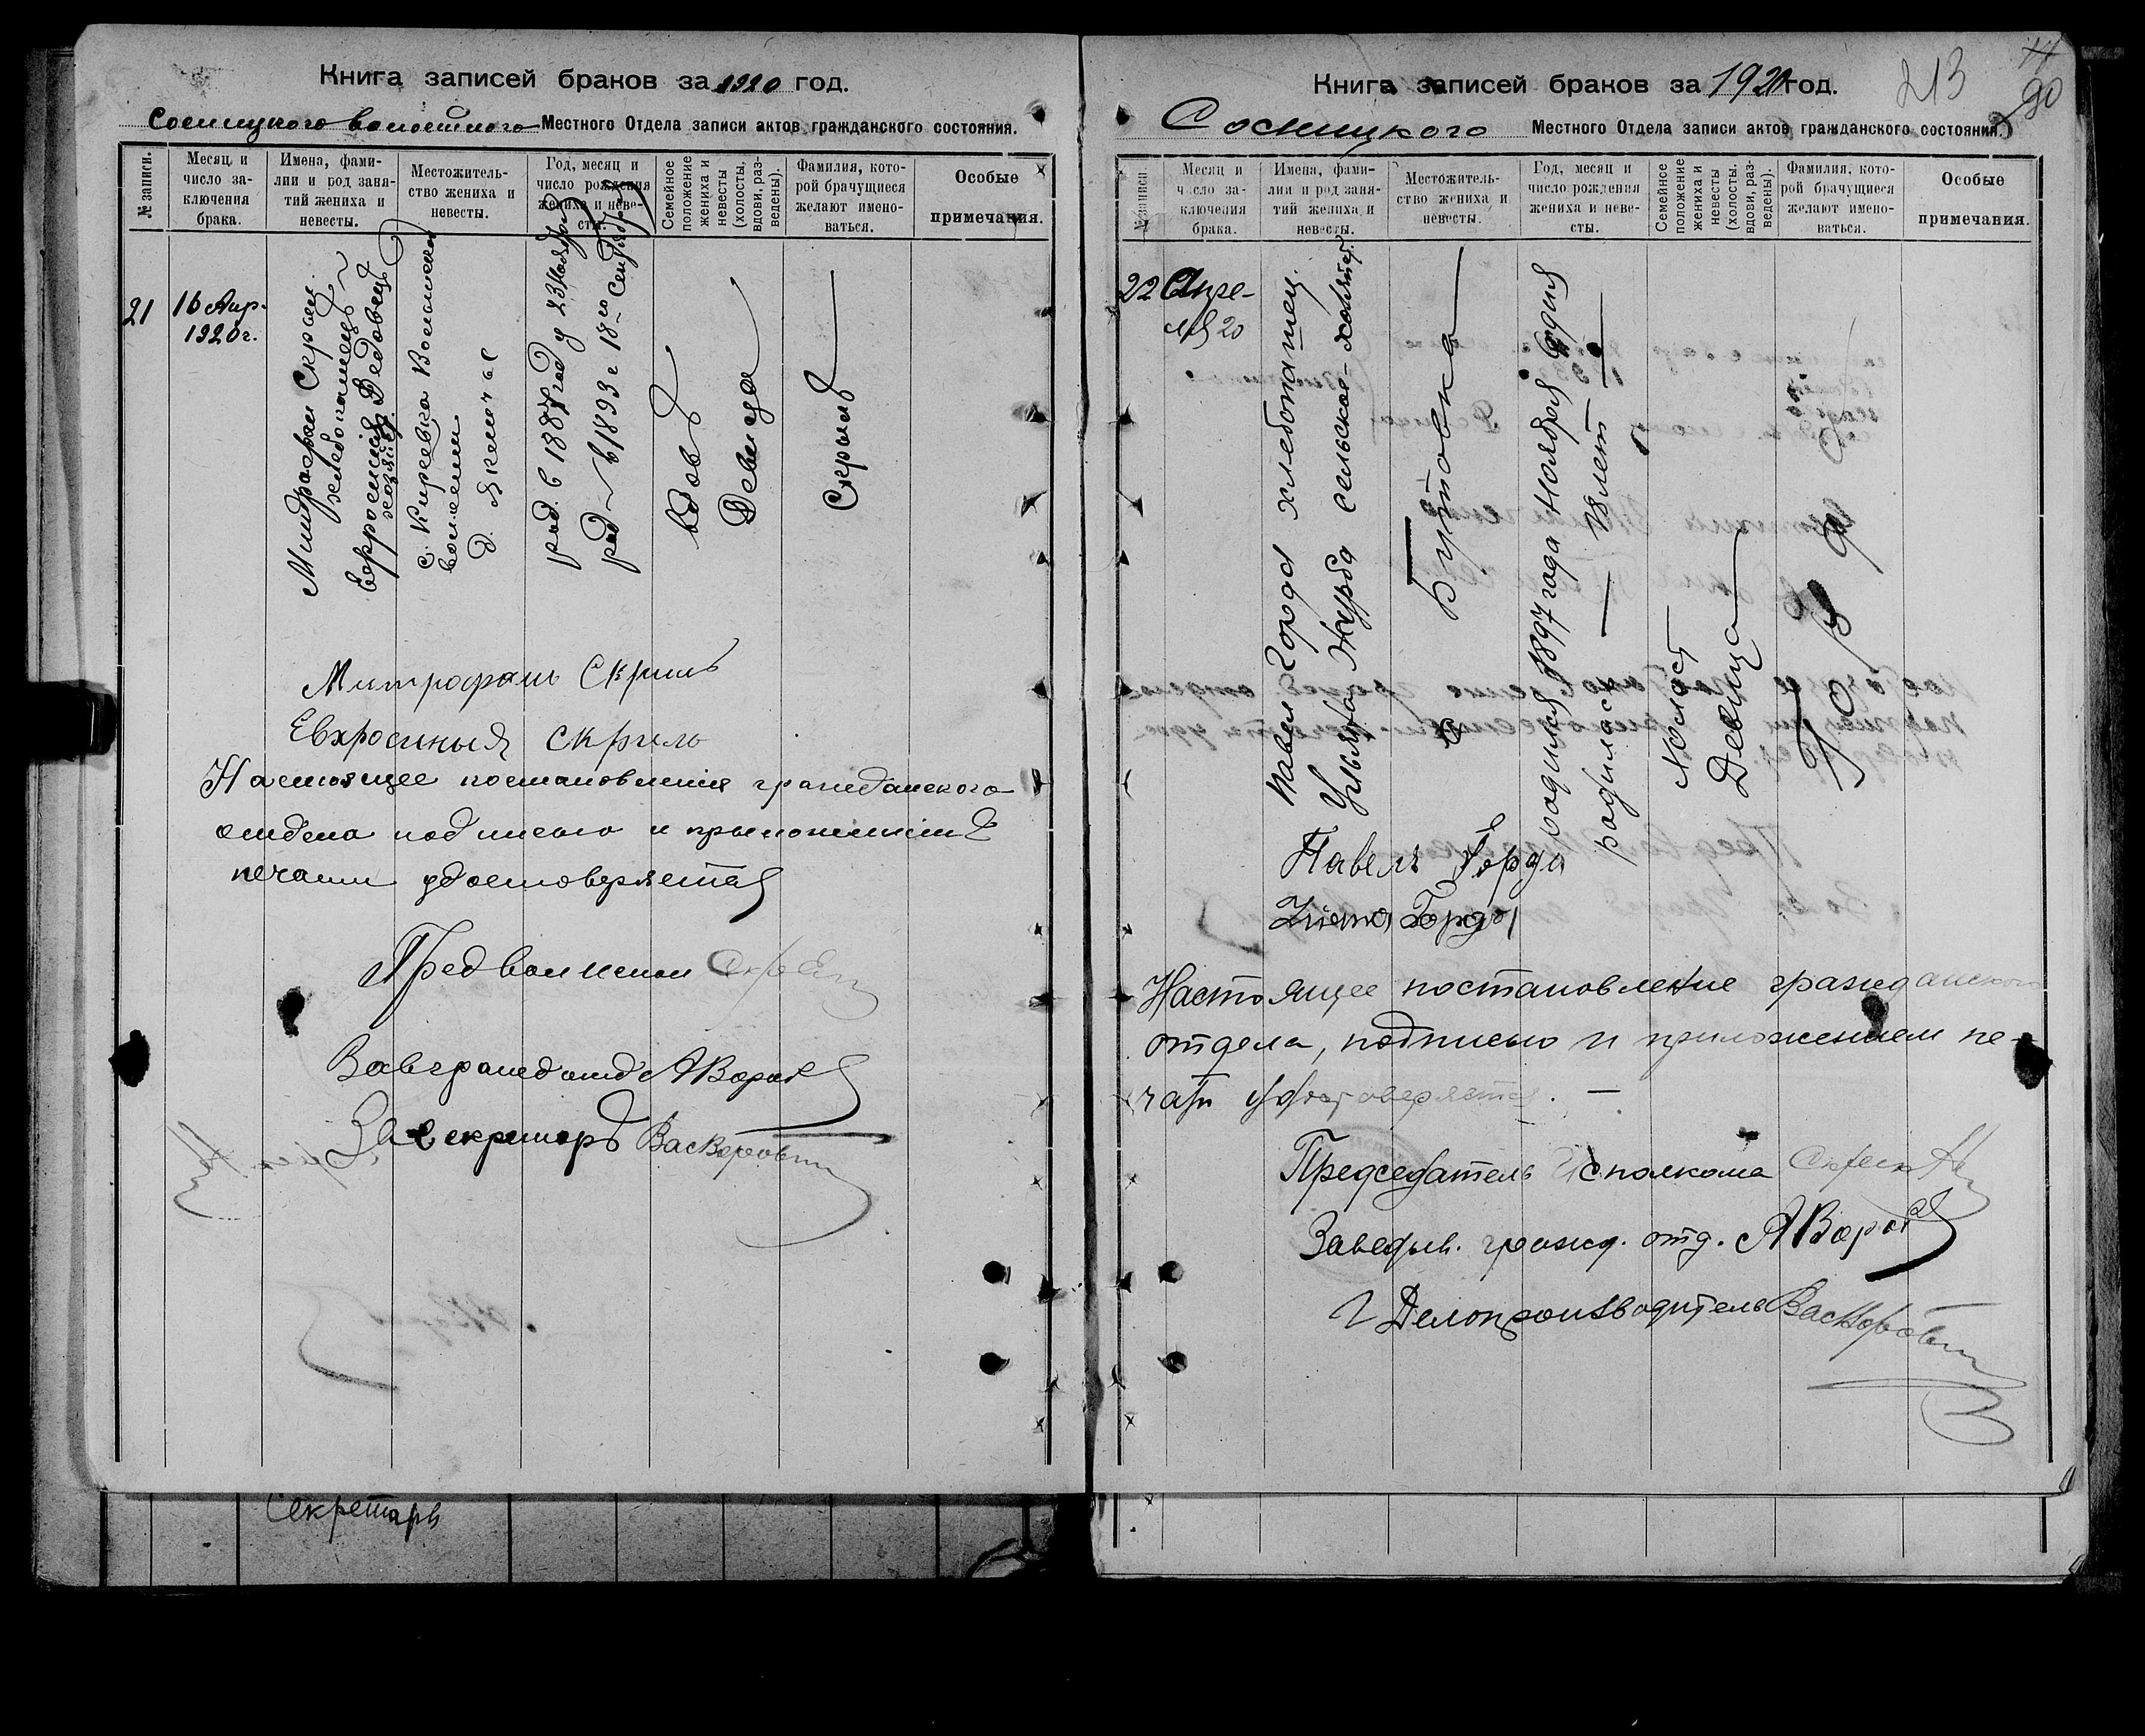 Книга записей браков за 1920 год.
Сосницкого волостного Местного Отдела записи актов гражданского состояния.
№ записи.
Месяц и число заключения брака.
Имена, фамилии и род занятий жениха и невесты.
Местожительство жениха и невесты.
Год, месяц и число рождения жениха и невесты.
Семейное положение жениха и невесты (холосты, вдови, разведены).
Фамилия, которой брачущиеся желают именоваться.
Особые примечания.
21
16 Апр.
1920 г.
Митрофан Скрыль
хлебопашец
Евфросиния Дедовец
с. Киреевка
волости
род. в 1887 год
род в 1893 г 18го Сентября
вдов
Девица
Скрыль
Митрофанъ Скриль
Евхросиныя скриль
Настоящее постановление гражданского
отдела подписью и приложением
печати удостоверяется
Пред волисполк
Завгражд отд АВорох
Секретарь
Секретарь
Книга записей браков за 1920 год.
213
90
Сосницкого Местного Отдела записи актов гражданского состояния.
№ записи
Месяц и число заключения брака.
Имена, фамилии и род занятий жениха и невесты.
Местожительство жениха и невесты.
Год, месяц и число рождения жениха и невесты.
Семейное положение жениха и невесты (холосты, вдови, разведены).
Фамилия, которой брачущиеся желают именоваться.
Особые примечания.
22
Апре-
ля 20
Павел Горда хлебопашец
Ульяна Журба сельское-хозяйст.
с Бутовка
родился 1897 года Ноября 8 дня
родилась — 18 лет —
Холост
Девица
Горда
Павелъ Горда
Горда
Настоящее постановление гражданского
отдела, подписью и приложением пе-
чати удостоверяется. —
Председатель Исполкома
Заведыв. гражд. отд. АВорох
Делопроизводитель